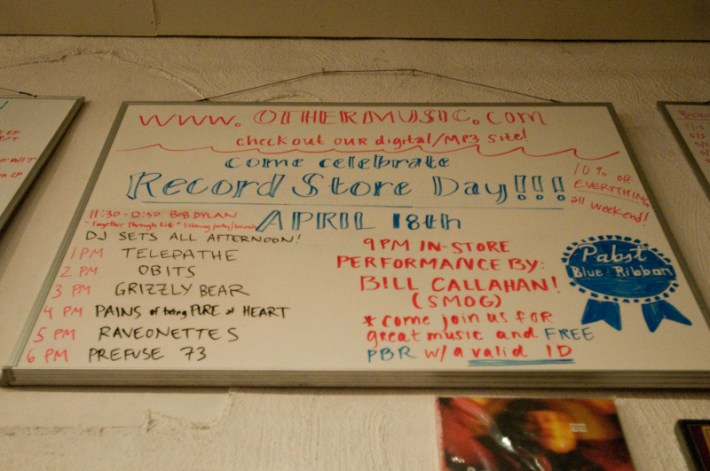 www.othermusic.com
check out our digital/MP3 site!
come celebrate
Record Store Day!!!
10% off
EVERYTHING
all weekend!
APRIL 18th
11:30 - 12:30 BOB DYLAN
"Together Through Life" listening party/
DJ SETS ALL AFTERNOON!
1 PM TELEPATHE
2 PM OBITS
3 PM GRIZZLY BEAR
4 PM PAINS of being PURE at HEART
5 PM RAVEONETTES
6 PM PREFUSE 73
9 PM IN-STORE
PERFORMANCE BY:
BILL CALLAHAN!
(SMOG)
* come join us for
great music and FREE
PBR w/ a valid ID
Pabst
Blue Ribbon